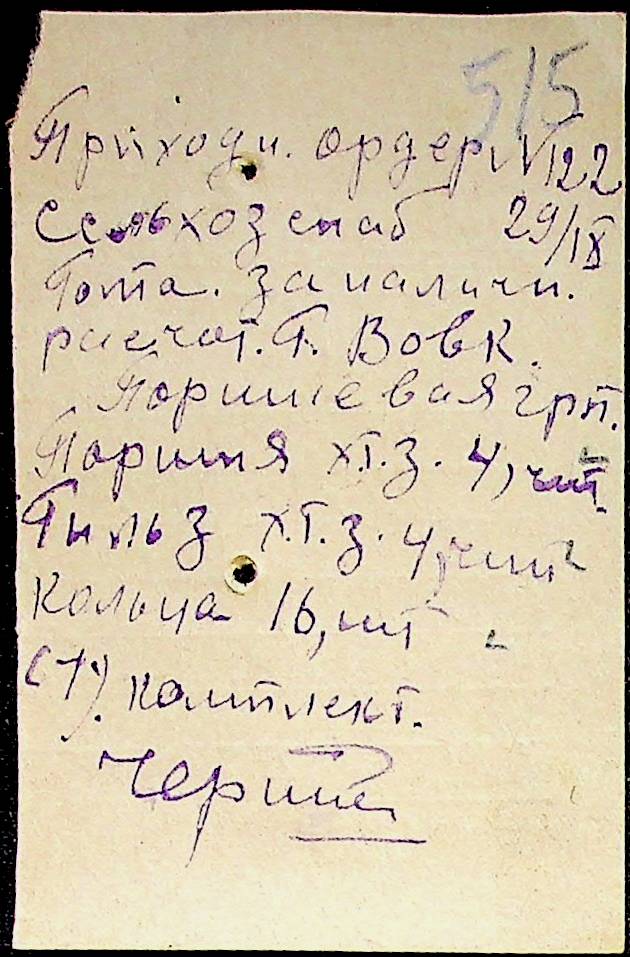 515
Приходн. ордер N 122
Сельхозснаб 29/IX
за наличн.
расчот. Г. Вовк.
Поршневая грп.
Поршня х.т.з. 4, шт.
Гильз х.т.з. 4, шт
Кольца 16, шт
(1) комплект.